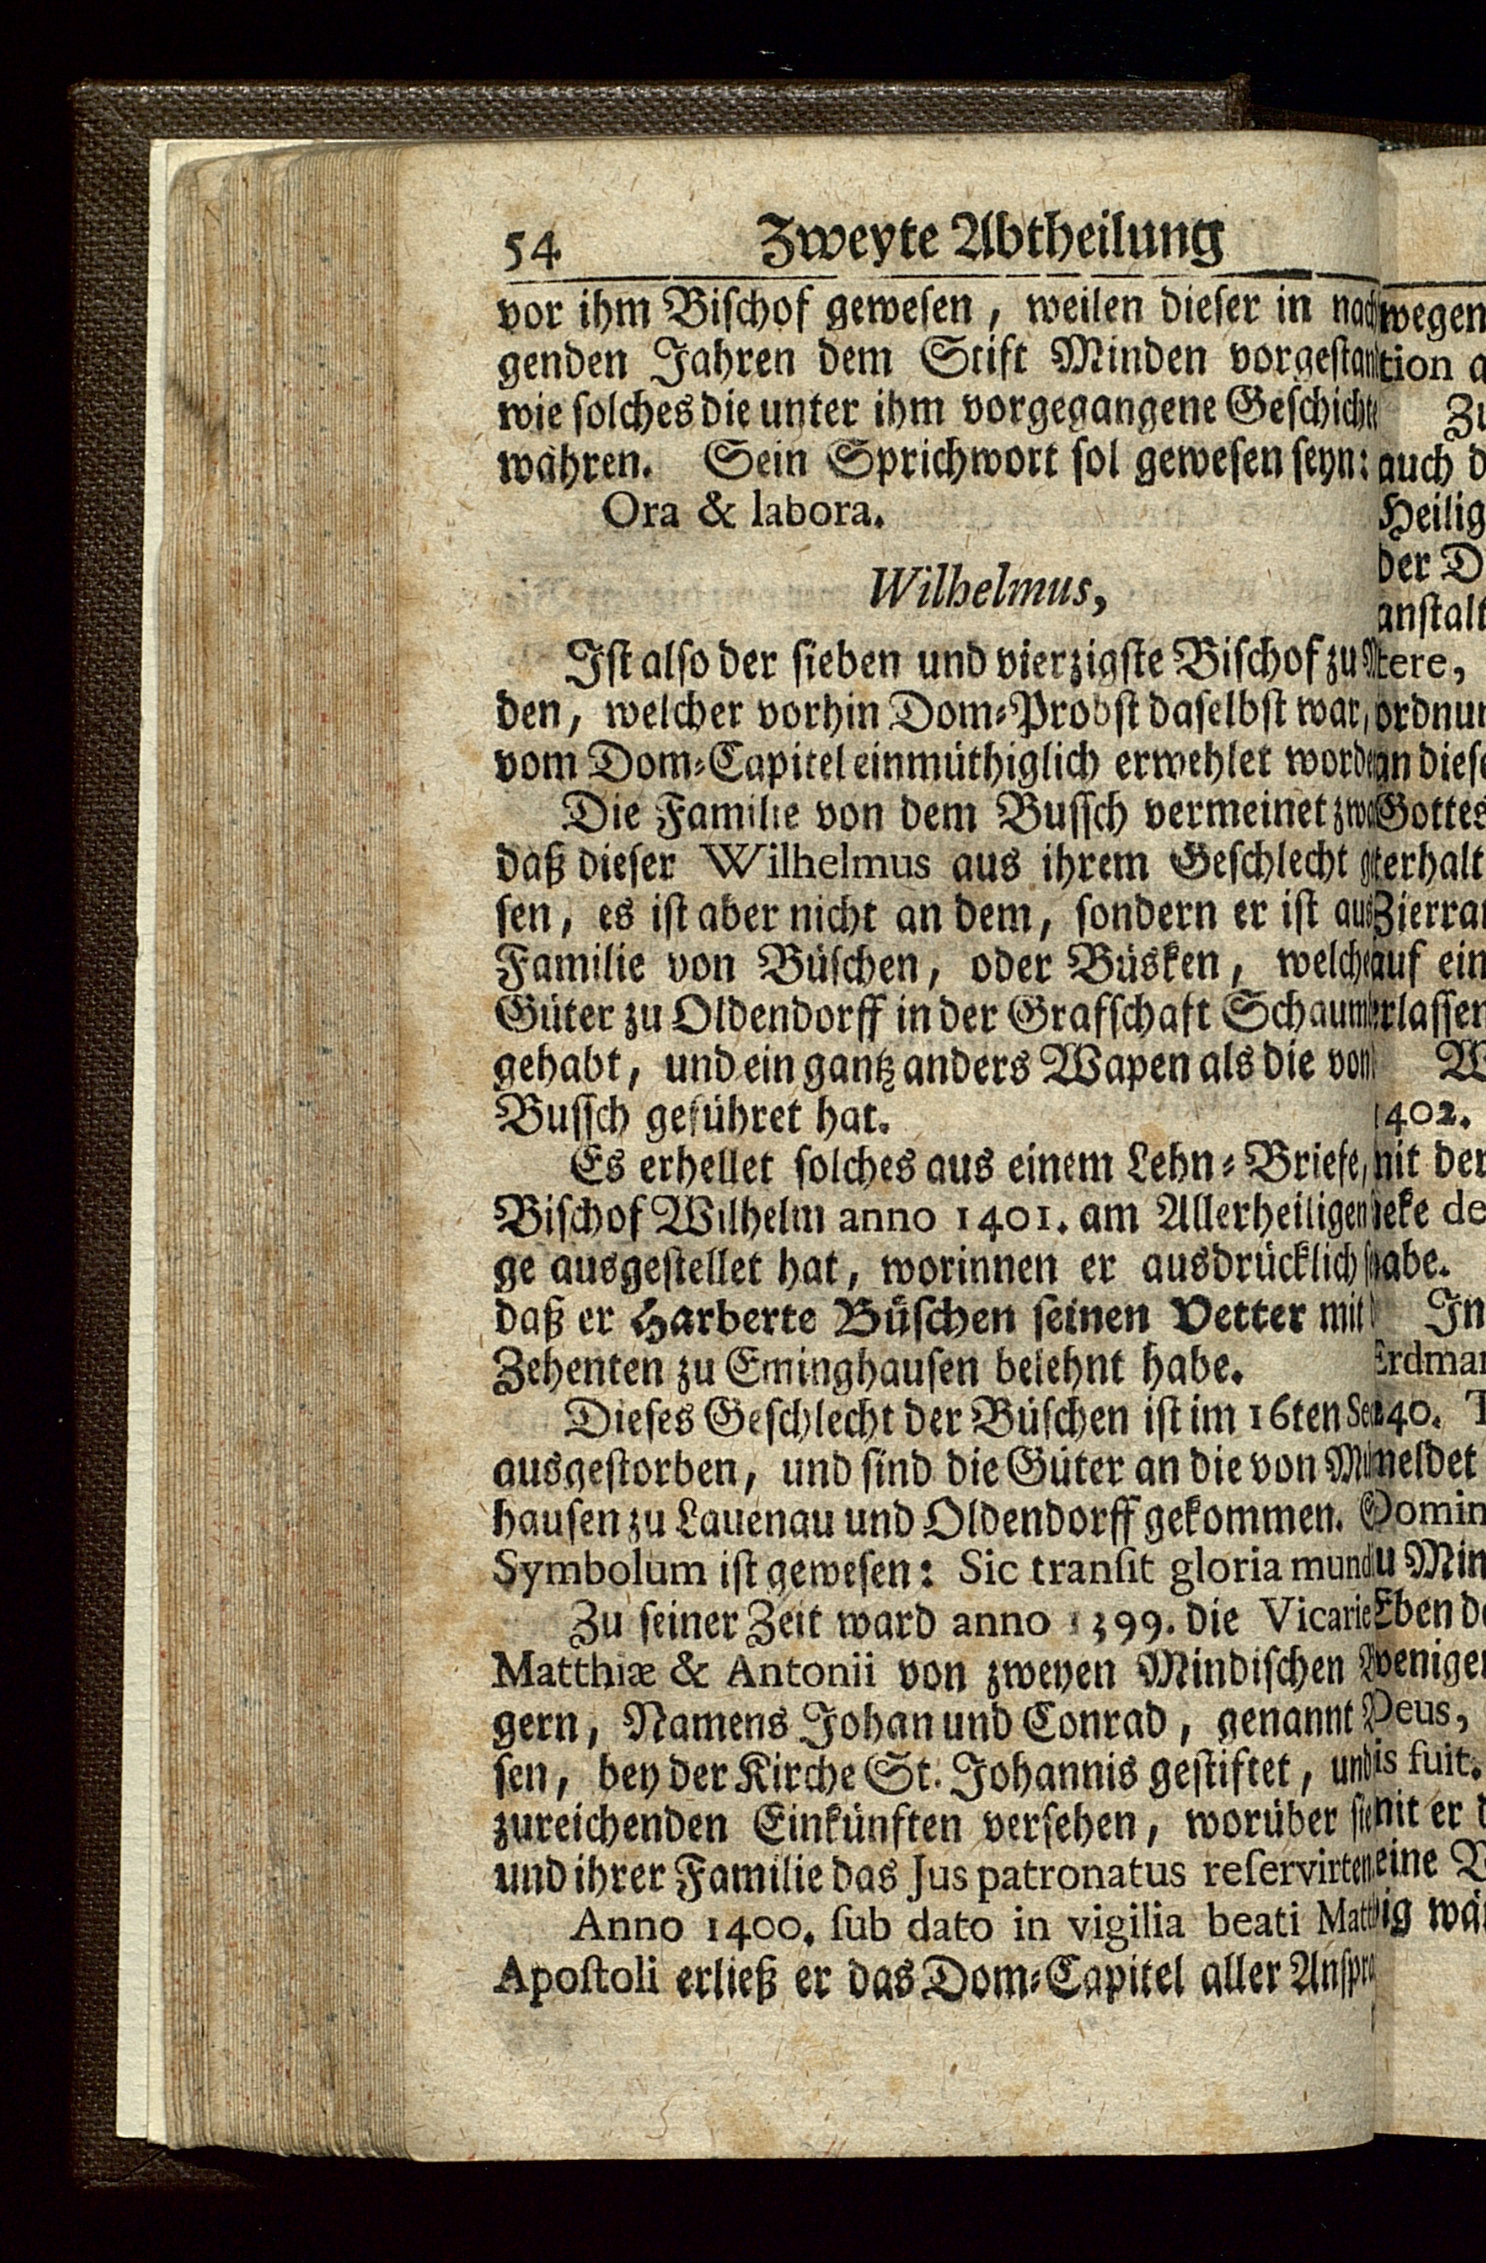 54 Zweyte Abtheilung
vor ihm Bischof gewesen, weilen dieser in
genden Jahren dem Stift Minden
wie solches die unter ihm vorgegangene
währen. Sein Sprichwort sol gewesen seyn:
Ora & labora.
Wilhelmus,
Ist also der sieben und vierzigste Bischof zu
den, welcher vorhin Dom-Probst daselbst war,
vom Dom-Capitel einmüthiglich erwehlet
Die Familie von dem Bussch vermeinet
daß dieser Wilhelmus aus ihrem Geschlecht
sen, es ist aber nicht an dem, sondern er ist aus
Familie von Büschen, oder Büsken, welche
Güter zu Oldendorff in der Grafschaft
gehabt, und ein gantz anders Wapen als die von
Bussch geführet hat.
Es erhellet solches aus einem Lehn-Briefe,
Bischof Wilhelm anno 1401. am
ge ausgestellet hat, worinnen er ausdrücklich
daß er Harberte Büschen seinen Vetter mit
Zehenten zu Eminghausen belehnt habe.
Dieses Geschlecht der Büschen ist im 16ten
ausgestorben, und sind die Güter an die von
hausen zu Lauenau und Oldendorff gekommen.
Symbolum ist gewesen: Sic transit gloria
Zu seiner Zeit ward anno 1399. die Vicarie
Matthiæ & Antonii von zweyen Mindischen
gern, Namens Johan und Conrad, genannt
sen, bey der Kirche St. Johannis gestiftet, und
zureichenden Einkünften versehen, worüber sie
und ihrer Familie das Jus patronatus reservirten.
Anno 1400. sub dato in vigilia beati
Apostoli erließ er das Dom-Capitel aller
wegen
tion
auch
der
tere,
an
auf
1402.
der
In
40.
is fuit.
er